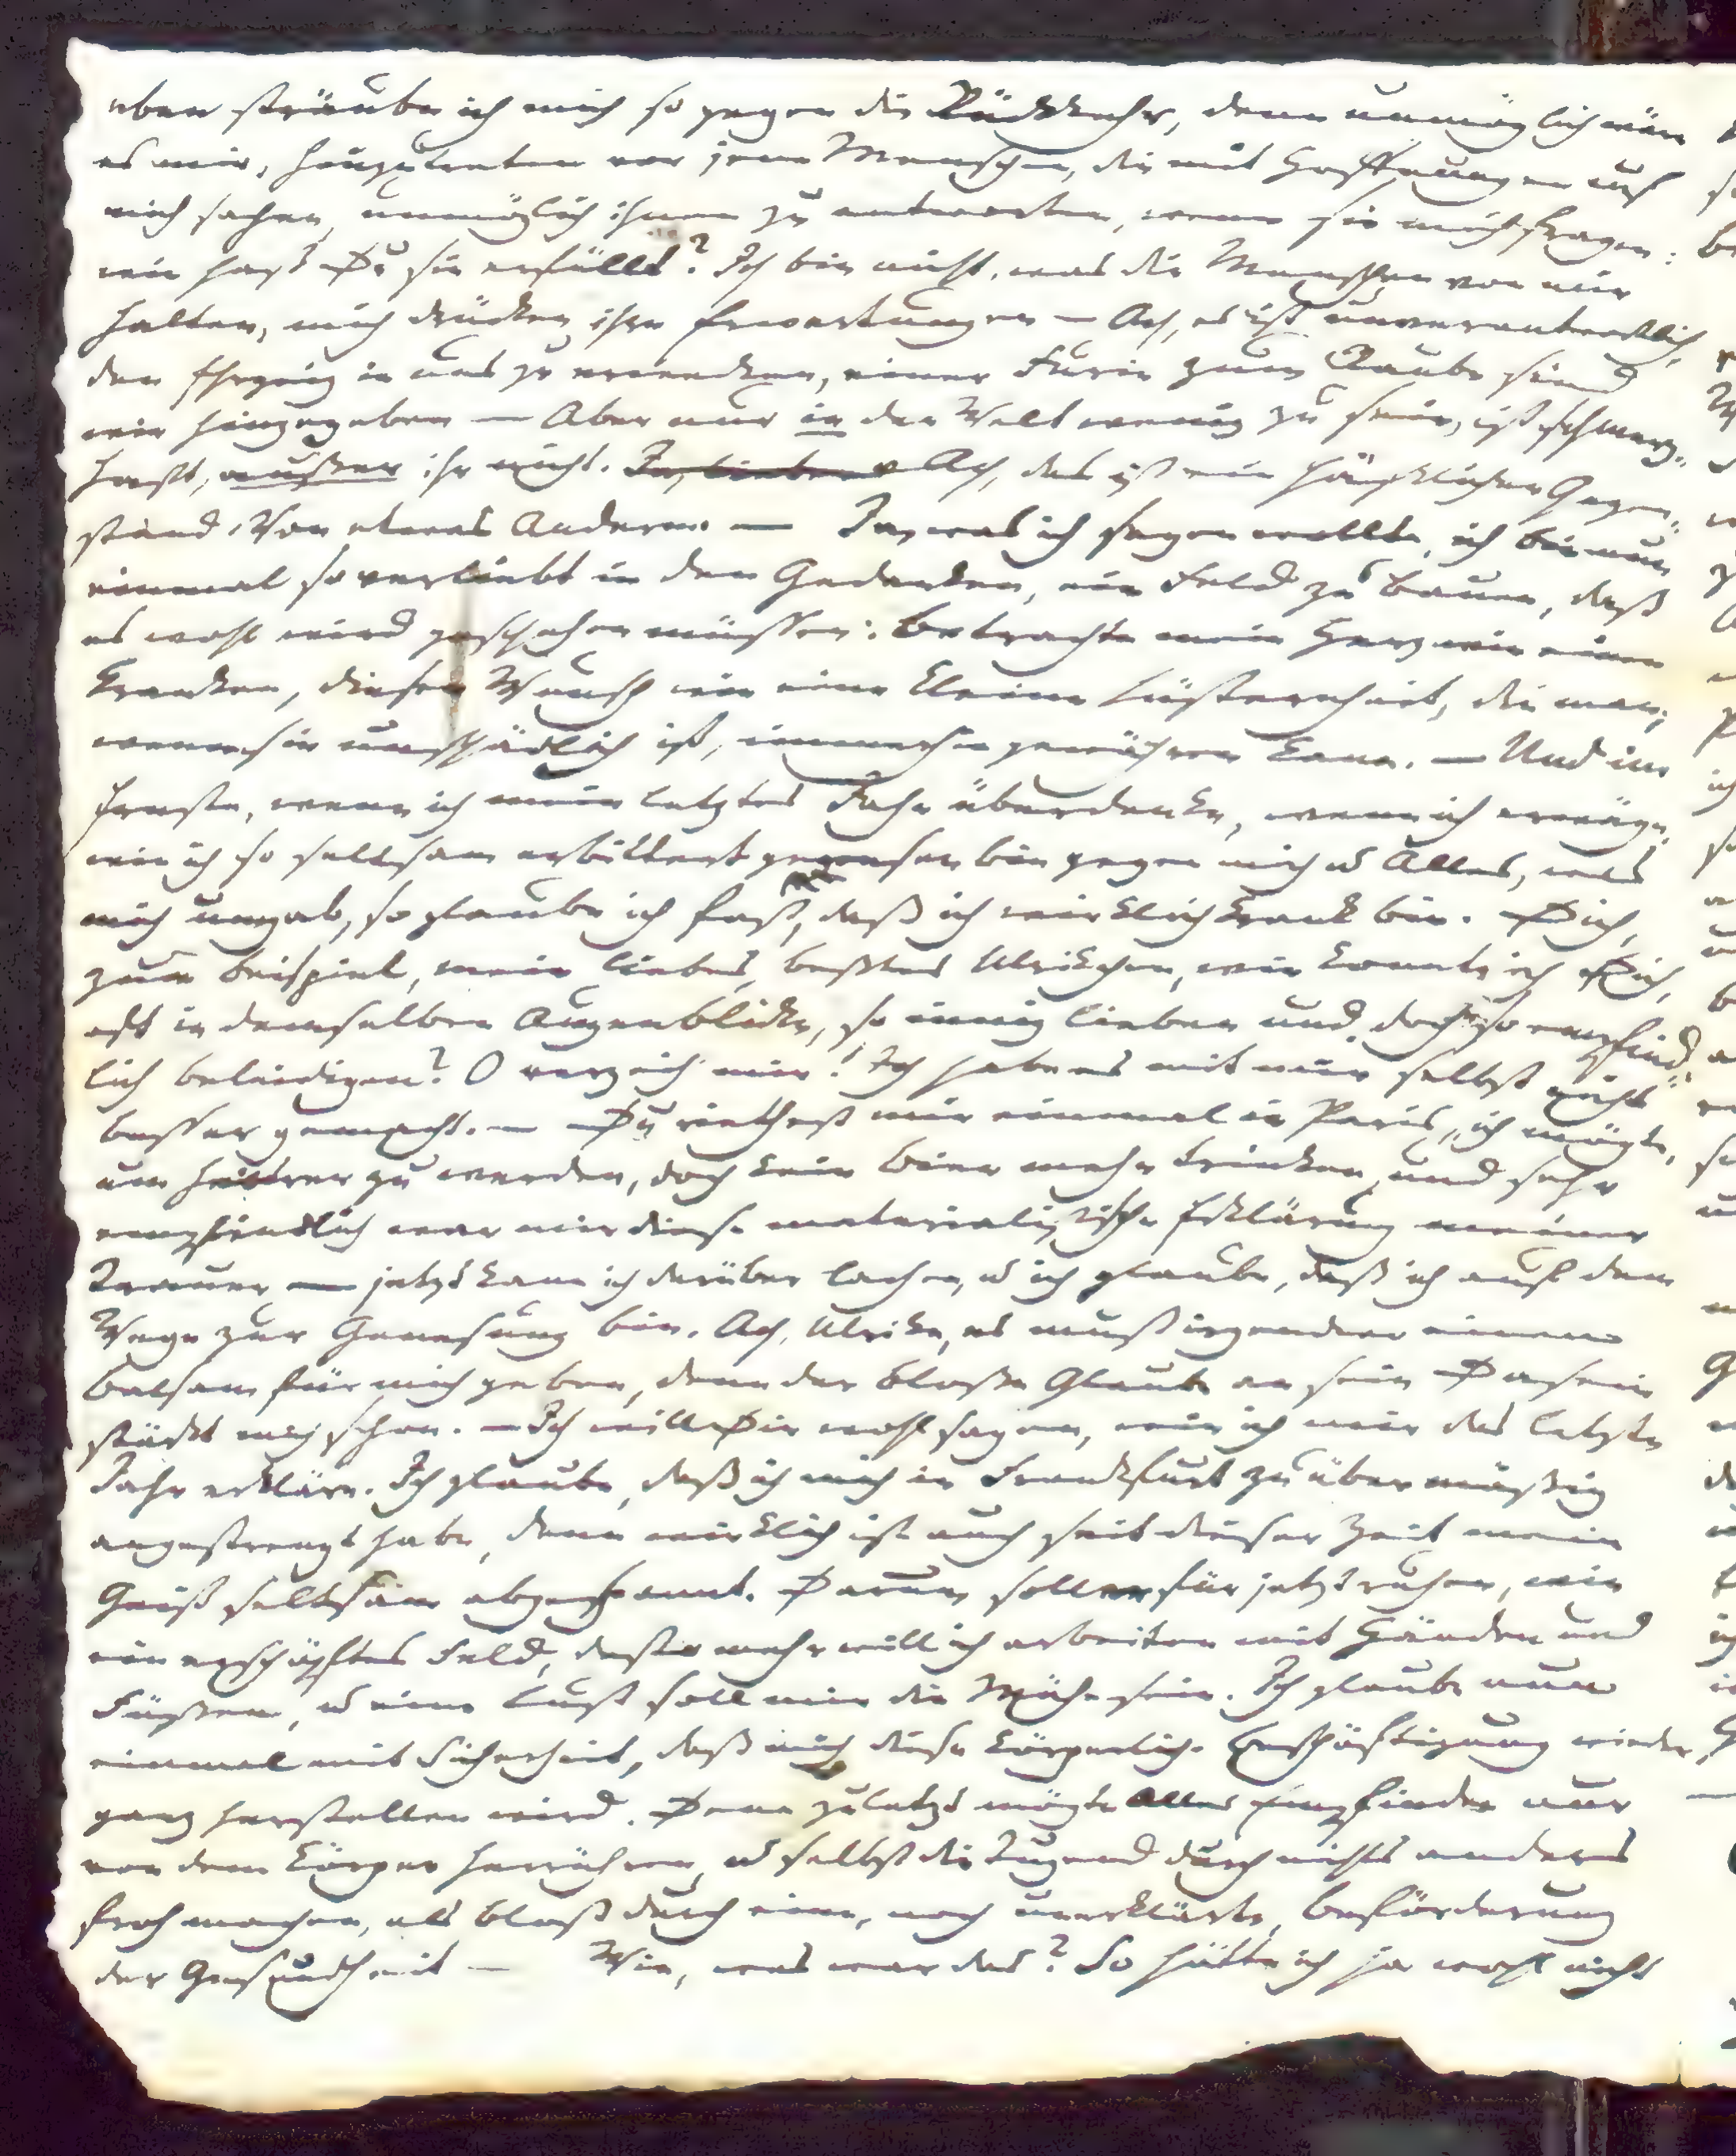 eben sträube ich mich so gegen die Rückkehr, denn unmöglich wäre
es mir, hinzutreten vor jene Menschen, die mit Hoffnungen auf
mich sahen, unmöglich ihnen zu antworten, wenn sie mich fragen:
wie hast Du sie erfüllt? Ich bin nicht, was die Menschen von mir
halten, mich drücken ihre Erwartungen — Ach, es ist unverantwortlich,
den Ehrgeitz in uns zu erwecken, einer Furie zum Raube sind
wir hingegeben — Aber nur in der Welt wenig zu sein, ist schmerz-
haft, außer ihr nicht. Ach, das ist ein häßlicher Gegen-
stand. Von etwas Anderem. — Ja, was ich sagen wollte, ich bin nun
einmal so verliebt in den Gedanken, ein Feld zu bauen, daß
es wohl wird geschehen müssen: Betrachte mein Herz wie einen
Kranken, diesen Wunsch wie eine kleine Lüsternheit, die man,
wenn sie unschädlich ist, immerhin gewähren kann. — Und im
Ernste, wenn ich mein letztes Jahr überdenke, wenn ich erwäge,
wie ich so seltsam erbittert gewesen bin gegen mich u Alles, was
mich umgab, so glaube ich fast, daß ich wirklich krank bin. Dich,
zum Beispiel, mein liebes, beßtes Ulrikchen, wie konnte ich Dich,
oft in demselben Augenblicke, so innig lieben und doch so empfind-
lich beleidigen? O verzeih mir! Ich habe es mit mir selbst nicht
besser gemacht. — Du riethest mir einmal in Paris, ich mögte,
um heitrer zu werden, doch kein Bier mehr trinken, und sehr
empfindlich war mir diese materialistische Erklärung meiner
Trauer — jetzt kann ich darüber lachen, u ich glaube, daß ich auf dem
Wege zur Genesung bin. Ach, Ulrike, es muß irgendwo einen
Balsam für mich geben, denn der bloße Glaube an sein Dasein
stärkt mich schon. — Ich will Dir wohl sagen, wie ich mir das letzte
Jahr erkläre. Ich glaube, daß ich mich in Frankfurt zu übermäßig
angestrengt habe, denn wirklich ist auch seit dieser Zeit mein
Geist seltsam abgespannt. Darum soll er für jetzt ruhen, wie
ein erschöpftes Feld, desto mehr will ich arbeiten mit Händen und
Füßen, u eine Lust soll mir die Mühe sein. Ich glaube nun
einmal mit Sicherheit, daß mich diese körperliche Beschäftigung wieder
ganz herstellen wird. Denn zuletzt mögte Alles Empfinden nur
von dem Körper herrühren, u selbst die Tugend durch nichts anderes
froh machen, als bloß durch eine, noch unerklärte, Beförderung
der Gesundheit — Wie, was war das? So hätte ich ja wohl nicht